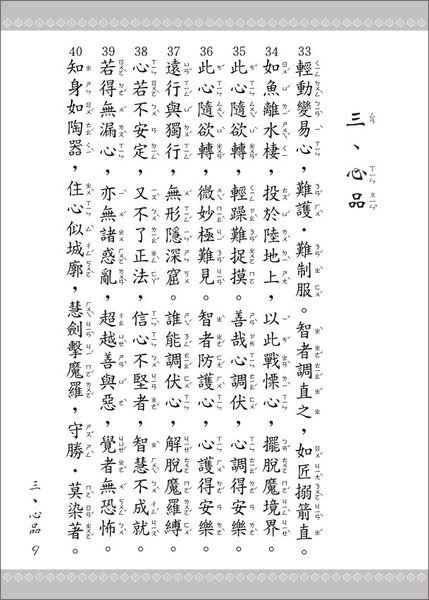 三、心品
33 輕動變易心，難護・難制服。智者調直之，如匠搦箭直。
34 如魚離水棲，投於陸地上，以此戰慄心，擺脫魔境界。
35 此心隨欲轉，輕躁難捉摸。善哉心調伏，心調得安樂。
36 此心隨欲轉，微妙極難見。智者防護心，心護得安樂。
37 遠行與獨行，無形隱深窟。誰能調伏心，解脫魔羅縛。
38 心若不安定，又不了正法，信心不堅者，智慧不成就。
39 若得無漏心，亦無諸惑亂，超越善與惡，覺者無恐怖。
40 知身如陶器，住心似城廓，慧劍擊魔羅，守勝・莫染著。
三、心品 9